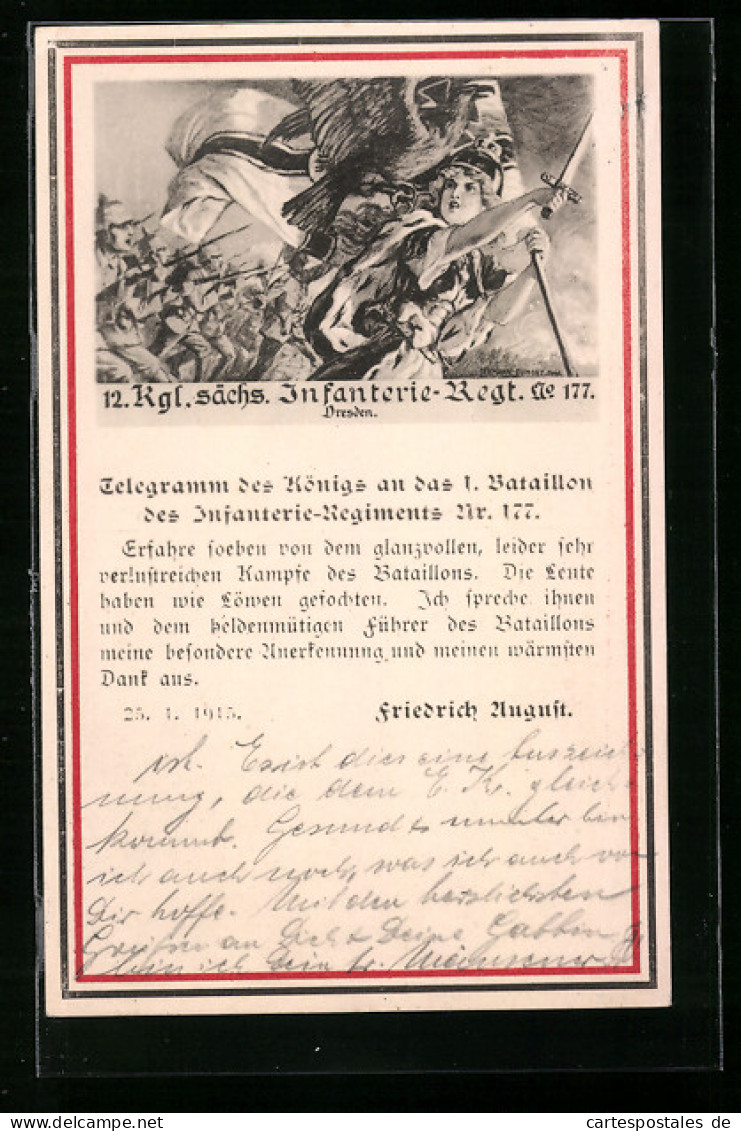 12. Kgl. sächs. Infanterie-Regt. No 177.
Dresden.
Telegramm des Königs an das 1. Bataillon
des Infanterie-Regiments Nr. 177.
Erfahre soeben von dem glanzvollen, leider sehr
verlustreichen Kampfe des Bataillons. Die Leute
haben wie Löwen gefochten. Ich spreche ihnen
und dem heldenmütigen Führer des Bataillons
meine besondere Anerkennung und meinen wärmsten
Dank aus.
25. 1. 1915. Friedrich August.
ist. Es ist dies eine Auszeich-
nung, die dem E. K. gleich-
kommt. Gesund & munter bin
ich auch noch, was ich auch von
Dir hoffe. Mit den herzlichsten
Grüßen an Dich & Deine Gattin
bin ich Dein tr.
cartespostales.de